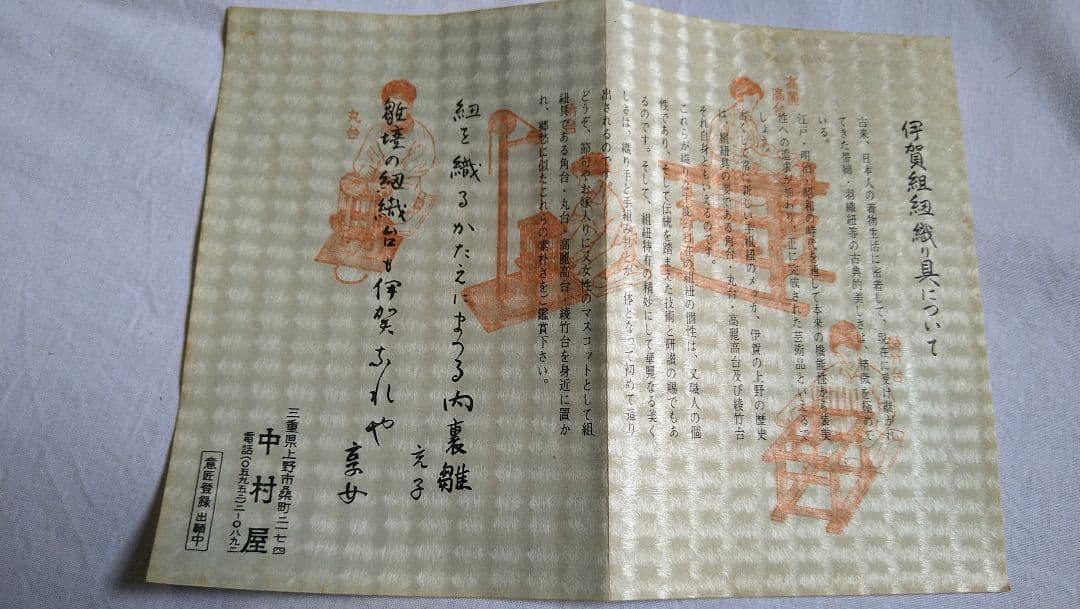 伊賀組紐織り具について
古来、日本人の着物生活に密着して、現在に受け継がれ
てきた帯締・羽織紐等の古典的美しさは、精微を極めて
いる。
江戸・明治・昭和の時代を通して本来の機能性から装美
性への追求が加わり、正に完成された芸術品といえるで
しょう。
古くして常に新しい手組紐のメッカ、伊賀の上野の歴史
は、組紐具の要である角台・丸台・高麗高台及び綾竹台
それ自身ともいえるのです。
これらが織りなす
の組紐の個性は、又職人の個
性であり、そして伝統を踏まえた技術と研鑽の賜でもあ
るのです。そして、組紐特有の精妙にして華麗なる美く
しさは、織り手と手組みの
とが一体となって初めて造り
出されるのです。
どうぞ、節句やお嫁入りに又女性のマスコットとして組
紐具である角台・丸台・高麗高台・綾竹台を身近に置か
れ、郷愁に似たこれらの素朴さをご鑑賞下さい。
高麗
高台
丸台
紐を織るかたえにまつる内裏雛
克子
雛壇の紐織台も伊賀なれや
京女
三重県上野市桑町二一七四
中村屋
電話(〇五九五二)三一〇八九二
意匠登録出願中